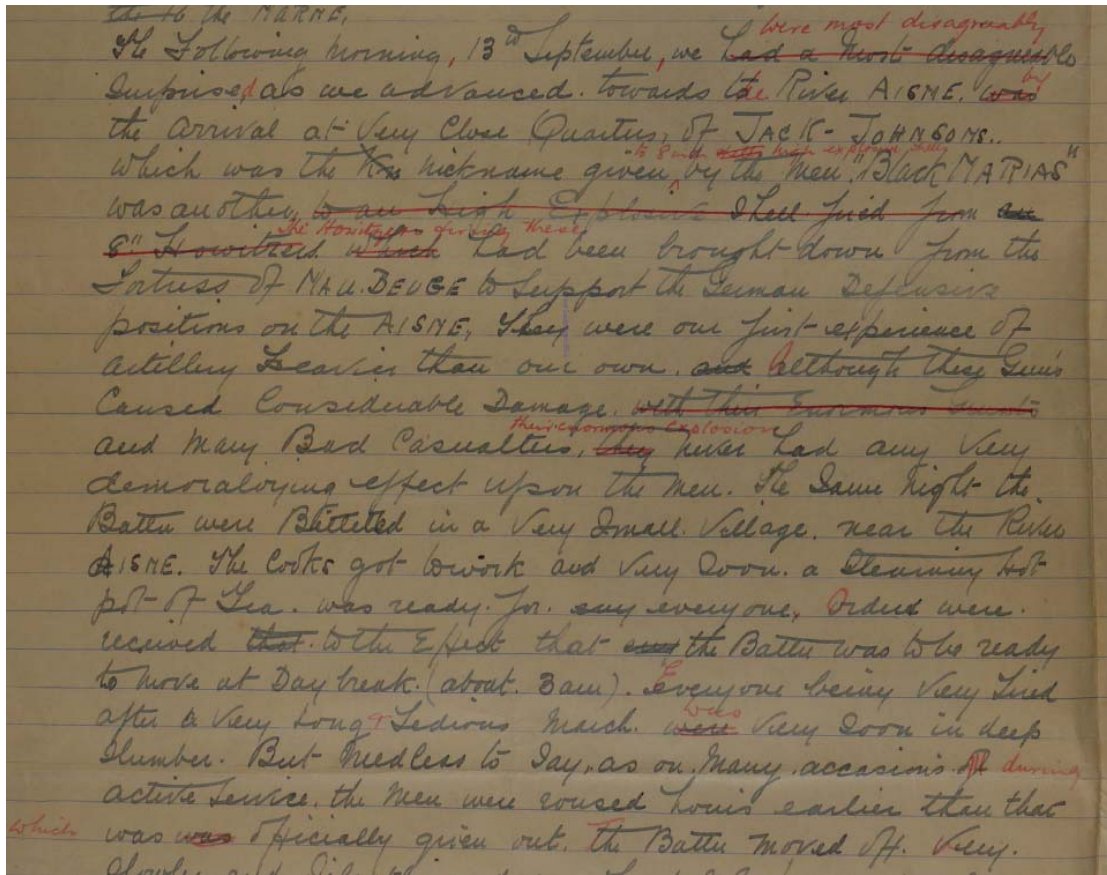 the to the MARNE.
were most disagreeably
The Following morning, 13th September, we had a most disagreeable
Surprised, as we advanced. towards the River AISNE. was by
the arrival at Very Close Quarters, of JACK-JOHNSONS..
to 8 inch high explosive shells
which was the nickname given by the Men. "Black MARIAS"
was another, to an High Explosive Shell fired from
The Howitzers firing these
8" Howitzers which had been brought down from the
Fortress of MAU.BEUGE to Support the German Defensive
positions on the AISNE, They were our first experience of
artillery Heavier than our own. and Although these Guns
Caused Considerable Damage. with their Enormous
their enormous explosion
and Many Bad Casualties, they never had any Very
demoralozing effect upon the Men. The Same Night the
Battn were Billeted in a Very Small Village. near the River
AISNE. The Cooks got to work and Very Soon. a Steaming Hot
pot of Tea. was ready. for. everyone, Orders were.
received that. to the Effect that the Battn was to be ready
to move at Day break. (about. 3am). Everyone being Very Tired
was
after a Very Long & Tedious March. were Very Soon in deep
Slumber. But Needless to Say, as on Many. occasions. during
active Service. the Men were roused hours earlier than that
which was was officially given out. The Battn moved off. Very.
Slowly and